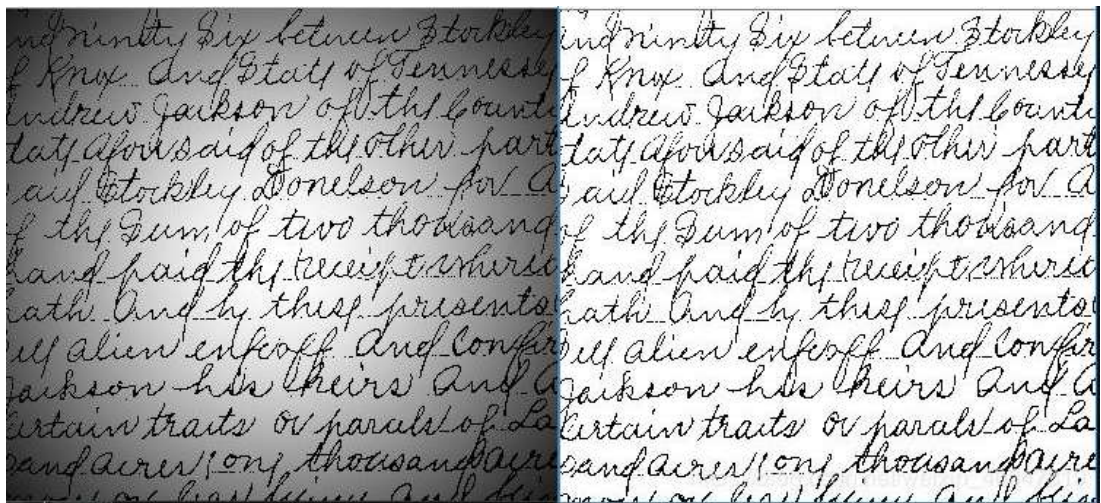 and ninety Six between Stockley
of Knox And State of Tennessey
Andrew Jackson of the Count
tate aforesaid of the other part
aid Stockley Donelson for A
of the Sum of two thousand
hand paid the receipt where
hath And by these presents
ell alien enfeoff And Confir
Jackson his heirs And A
ertain tracts or parcels of La
sand acres one thousand acre
and ninety Six between Stockley
of Knox And State of Tennessey
Andrew Jackson of the Count
tate aforesaid of the other part
aid Stockley Donelson for A
of the Sum of two thousand
hand paid the receipt where
hath And by these presents
ell alien enfeoff And Confir
Jackson his heirs And A
ertain tracts or parcels of La
sand acres one thousand acre